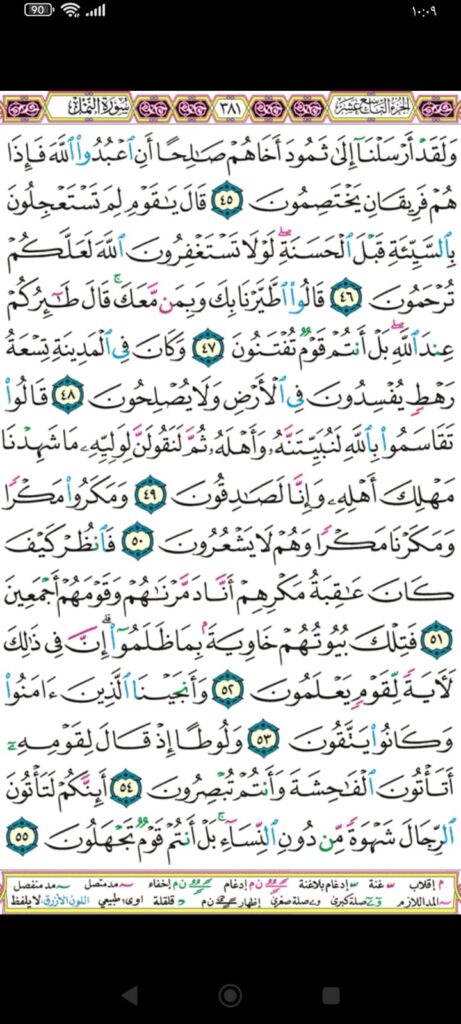 90 ١٠:٠٩
الجزء التاسع عشر ٣٨١ سورة النمل
وَلَقَدْ أَرْسَلْنَآ إِلَىٰ ثَمُودَ أَخَاهُمْ صَـٰلِحًا أَنِ ٱعْبُدُوا۟ ٱللَّهَ فَإِذَا
هُمْ فَرِيقَانِ يَخْتَصِمُونَ ٤٥ قَالَ يَـٰقَوْمِ لِمَ تَسْتَعْجِلُونَ
بِٱلسَّيِّئَةِ قَبْلَ ٱلْحَسَنَةِ ۖ لَوْلَا تَسْتَغْفِرُونَ ٱللَّهَ لَعَلَّكُمْ
تُرْحَمُونَ ٤٦ قَالُوا۟ ٱطَّيَّرْنَا بِكَ وَبِمَن مَّعَكَ ۚ قَالَ طَـٰٓئِرُكُمْ
عِندَ ٱللَّهِ ۖ بَلْ أَنتُمْ قَوْمٌ تُفْتَنُونَ ٤٧ وَكَانَ فِى ٱلْمَدِينَةِ تِسْعَةُ
رَهْطٍ يُفْسِدُونَ فِى ٱلْأَرْضِ وَلَا يُصْلِحُونَ ٤٨ قَالُوا۟
تَقَاسَمُوا۟ بِٱللَّهِ لَنُبَيِّتَنَّهُۥ وَأَهْلَهُۥ ثُمَّ لَنَقُولَنَّ لِوَلِيِّهِۦ مَا شَهِدْنَا
مَهْلِكَ أَهْلِهِۦ وَإِنَّا لَصَـٰدِقُونَ ٤٩ وَمَكَرُوا۟ مَكْرًا
وَمَكَرْنَا مَكْرًا وَهُمْ لَا يَشْعُرُونَ ٥٠ فَٱنظُرْ كَيْفَ
كَانَ عَـٰقِبَةُ مَكْرِهِمْ أَنَّا دَمَّرْنَـٰهُمْ وَقَوْمَهُمْ أَجْمَعِينَ
٥١ فَتِلْكَ بُيُوتُهُمْ خَاوِيَةًۢ بِمَا ظَلَمُوٓا۟ ۗ إِنَّ فِى ذَٰلِكَ
لَـَٔايَةً لِّقَوْمٍ يَعْلَمُونَ ٥٢ وَأَنجَيْنَا ٱلَّذِينَ ءَامَنُوا۟
وَكَانُوا۟ يَتَّقُونَ ٥٣ وَلُوطًا إِذْ قَالَ لِقَوْمِهِۦٓ
أَتَأْتُونَ ٱلْفَـٰحِشَةَ وَأَنتُمْ تُبْصِرُونَ ٥٤ أَئِنَّكُمْ لَتَأْتُونَ
ٱلرِّجَالَ شَهْوَةً مِّن دُونِ ٱلنِّسَآءِ ۚ بَلْ أَنتُمْ قَوْمٌ تَجْهَلُونَ ٥٥
م إقلاب غنة إدغام بلاغنة ن م إدغام ن م إخفاء مد متصل مد منفصل
المد اللازم صلة كبرى صلة صغرى إظهار ن م قلقلة اوى: طبيعي اللون الأزرق: لا يلفظ